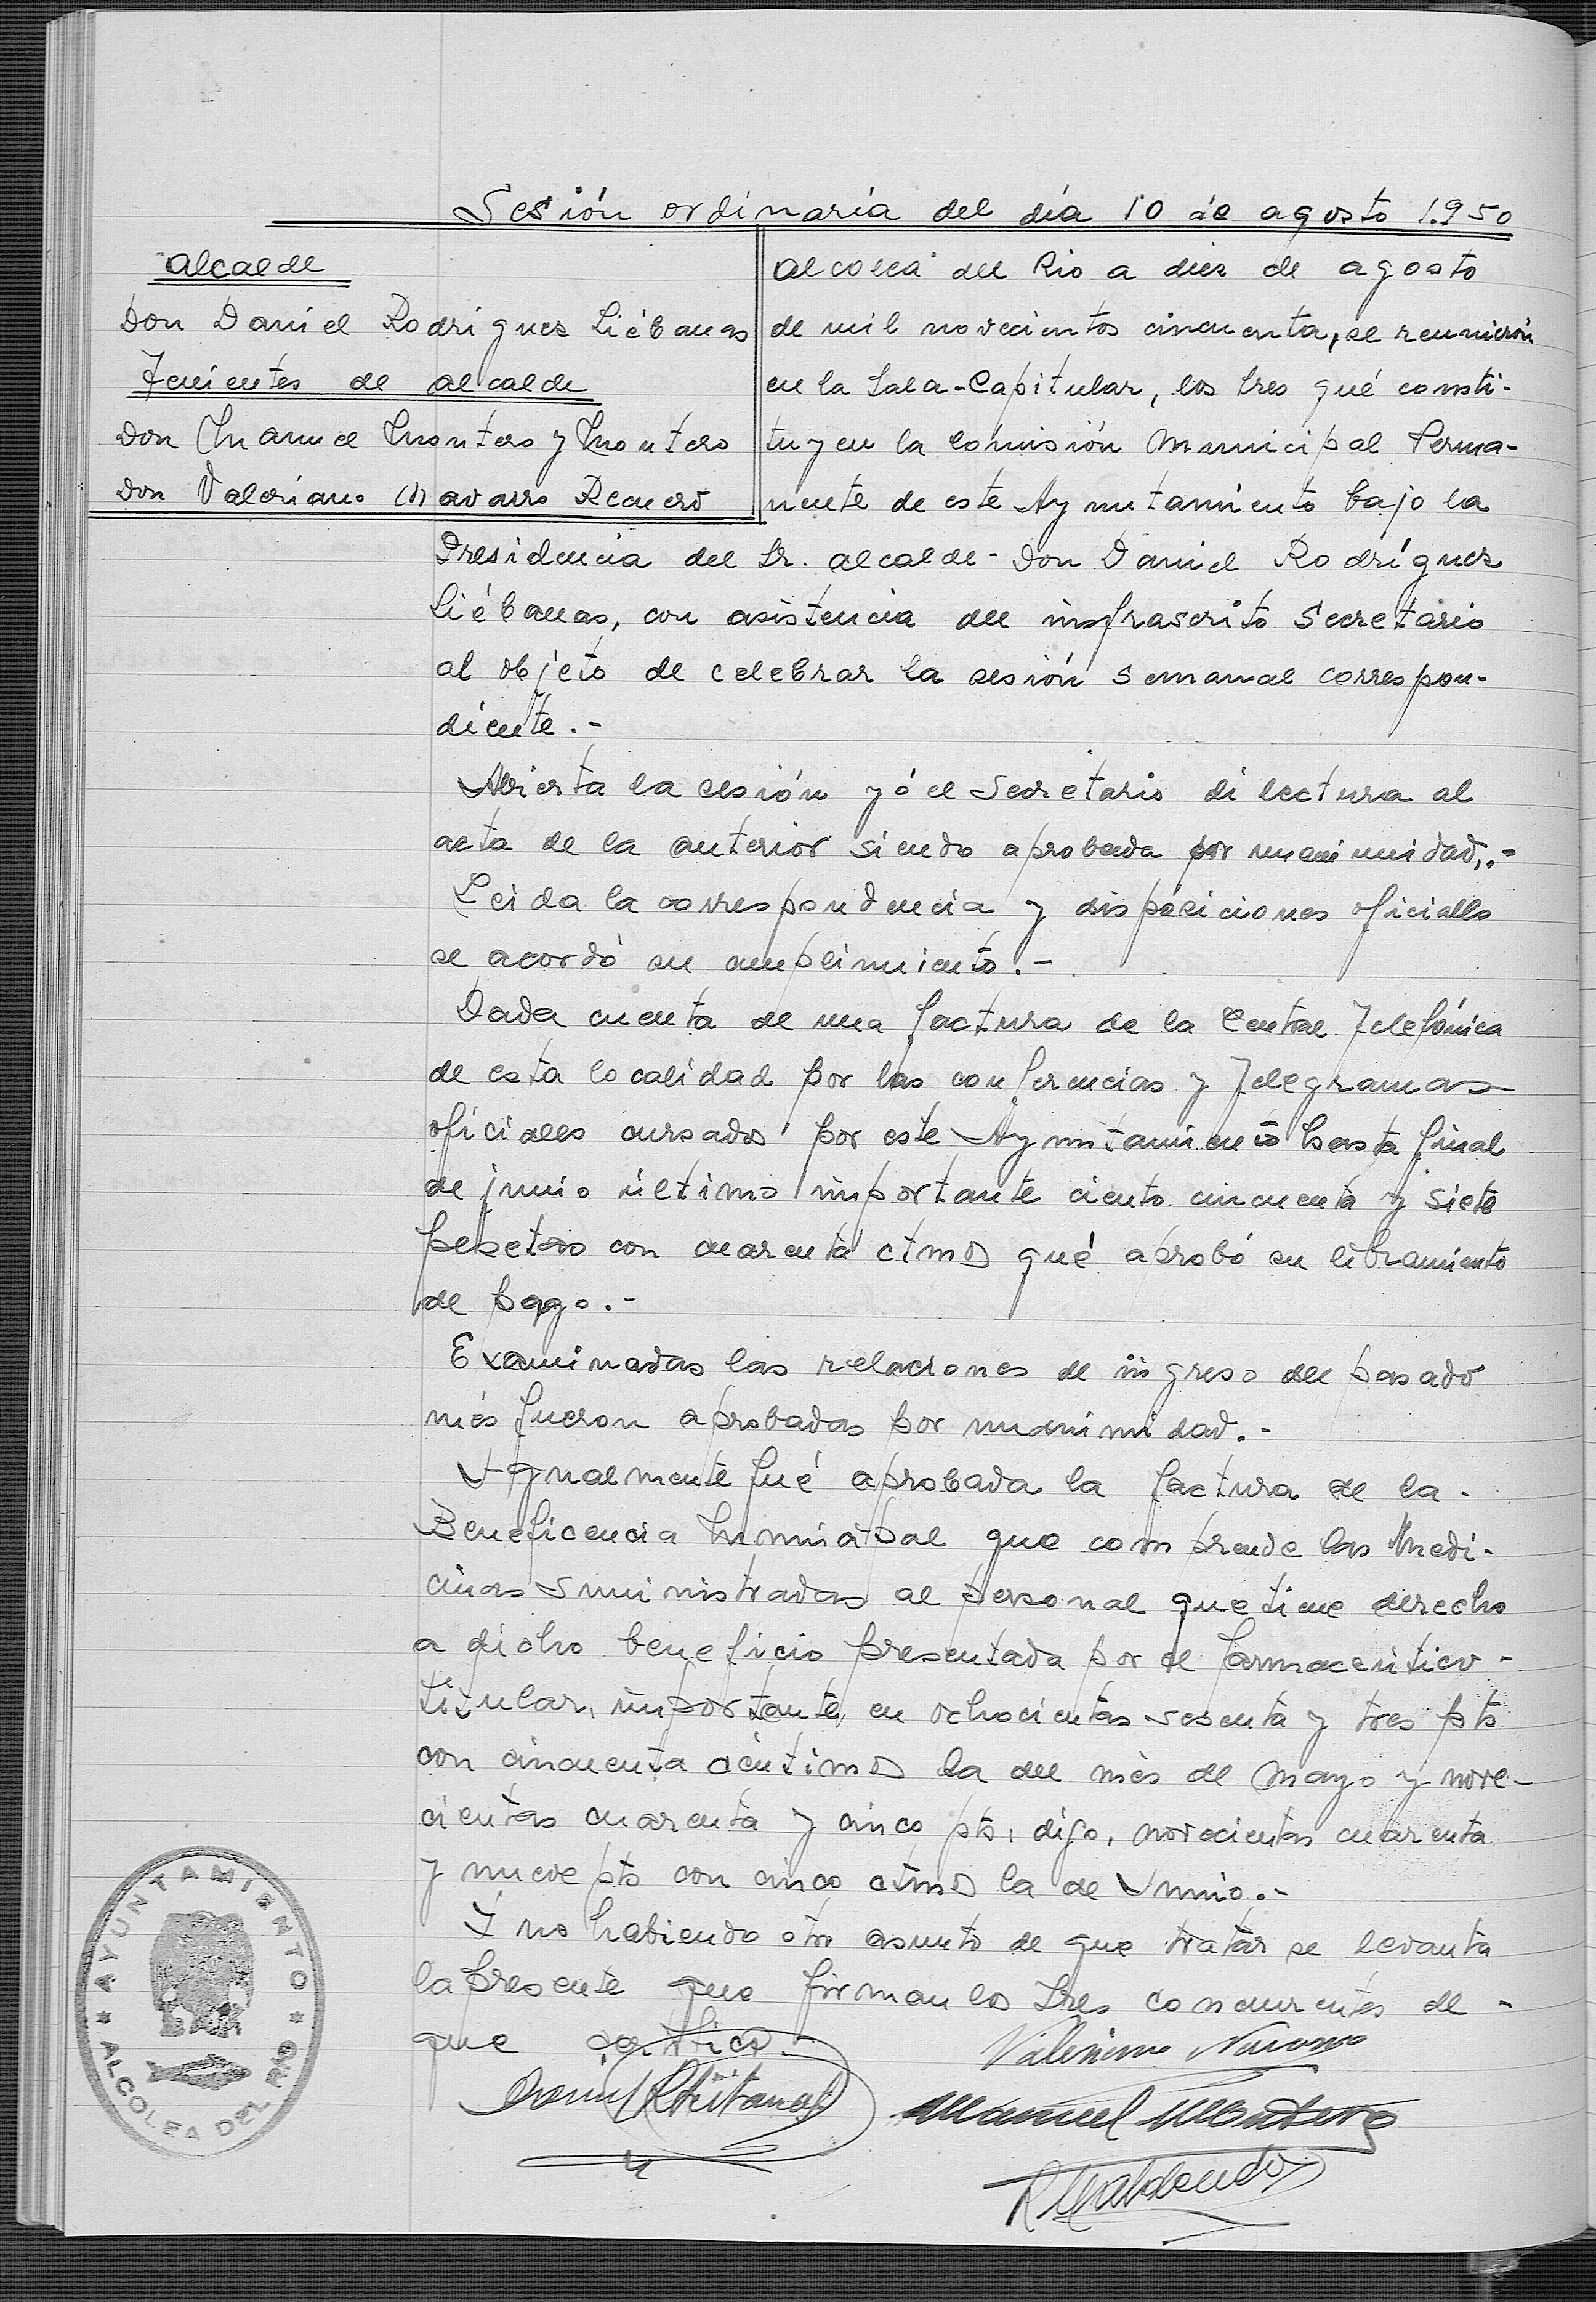 Sesión ordinaria del día 10 de agosto 1.950
Alcalde
Don Daniel Rodriguez Liébanas
Tenientes de alcalde
Don Manuel Montero y Montero
Don Valeriano Navarro Recuero
Alcolea del Rio a diez de agosto
de mil novecientos cincuenta, se reunierón
en la Sala-Capitular, los Sres qué consti-
tuyen la Comisión Municipal Perma-
nente de este Ayuntamiento bajo la
Presidencia del Sr. Alcalde- Don Daniel Rodríguez
Liébanas, con asistencia del insfrascrito Secretario
al objeto de celebrar la sesión semanal correspon-
diente.-
Abierta la sesión yó el Secretario di lectura al
acta de la anterior siendo aprobada por unanimidad.-
Leida la correspondencia y disposiciones oficiales
se acordó su cumplimiento.-
Dada cuenta de una factura de la Central Telefónica
de esta localidad por las conferencias y Telegramas
oficiales cursados por este Ayuntamiento hasta final
de junio último importante ciento cincuenta y siete
pesetas con cuarenta ctmos qué aprobó su libramiento
de pago.-
Examinadas las relaciones de ingreso del pasado
més fueron aprobadas por unanimidad.-
Igualmente fué aprobada la factura de la
Beneficencia Municipal que comprende las Medi-
cinas suministradas al personal que tiene derecho
a dicho beneficio presentada por el farmaceútico-
titular, importante en ochocientas sesenta y tres pts
con cincuenta céntimos la del més de Mayo y nove-
cientas cuarenta y cinco pts, digo, novecientas cuarenta
y nueve pts con cinco ctmos la de Junio.-
Y no habiendo otro asunto de que tratar se levanta
la presente que firman los Sres concurrentes de
que certifico.-
Valeriano Navarro
Daniel R Liébanas
Manuel Montero
AYUNTAMIENTO
ALCOLEA DEL RÍO